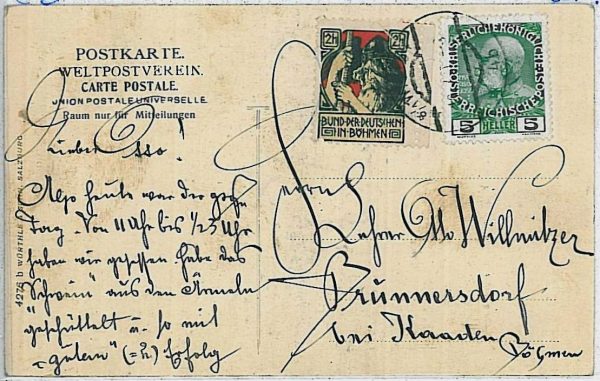 POSTKARTE.
WELTPOSTVEREIN.
CARTE POSTALE.
UNION POSTALE UNIVERSELLE.
Raum nur für Mitteilungen
2H 2H
BUND DER DEUTSCHEN
IN BÖHMEN
KAISERLICHE KÖNIGLICHE ÖSTERREICHISCHE POST
5 HELLER 5
Lieber Otto!
Also heute war der große
Tag. Von 11 Uhr bis 1/2 5 Uhr
haben wir gesessen habe das
"Schwein" aus den Ärmeln
"geschüttelt" u. so mit
"gutem" (= 2) Erfolg
Herrn
Lehrer Otto Willmitzer
Brünnersdorf
bei Kaaden
Böhmen
4276 b WÜRTHLE SALZBURG